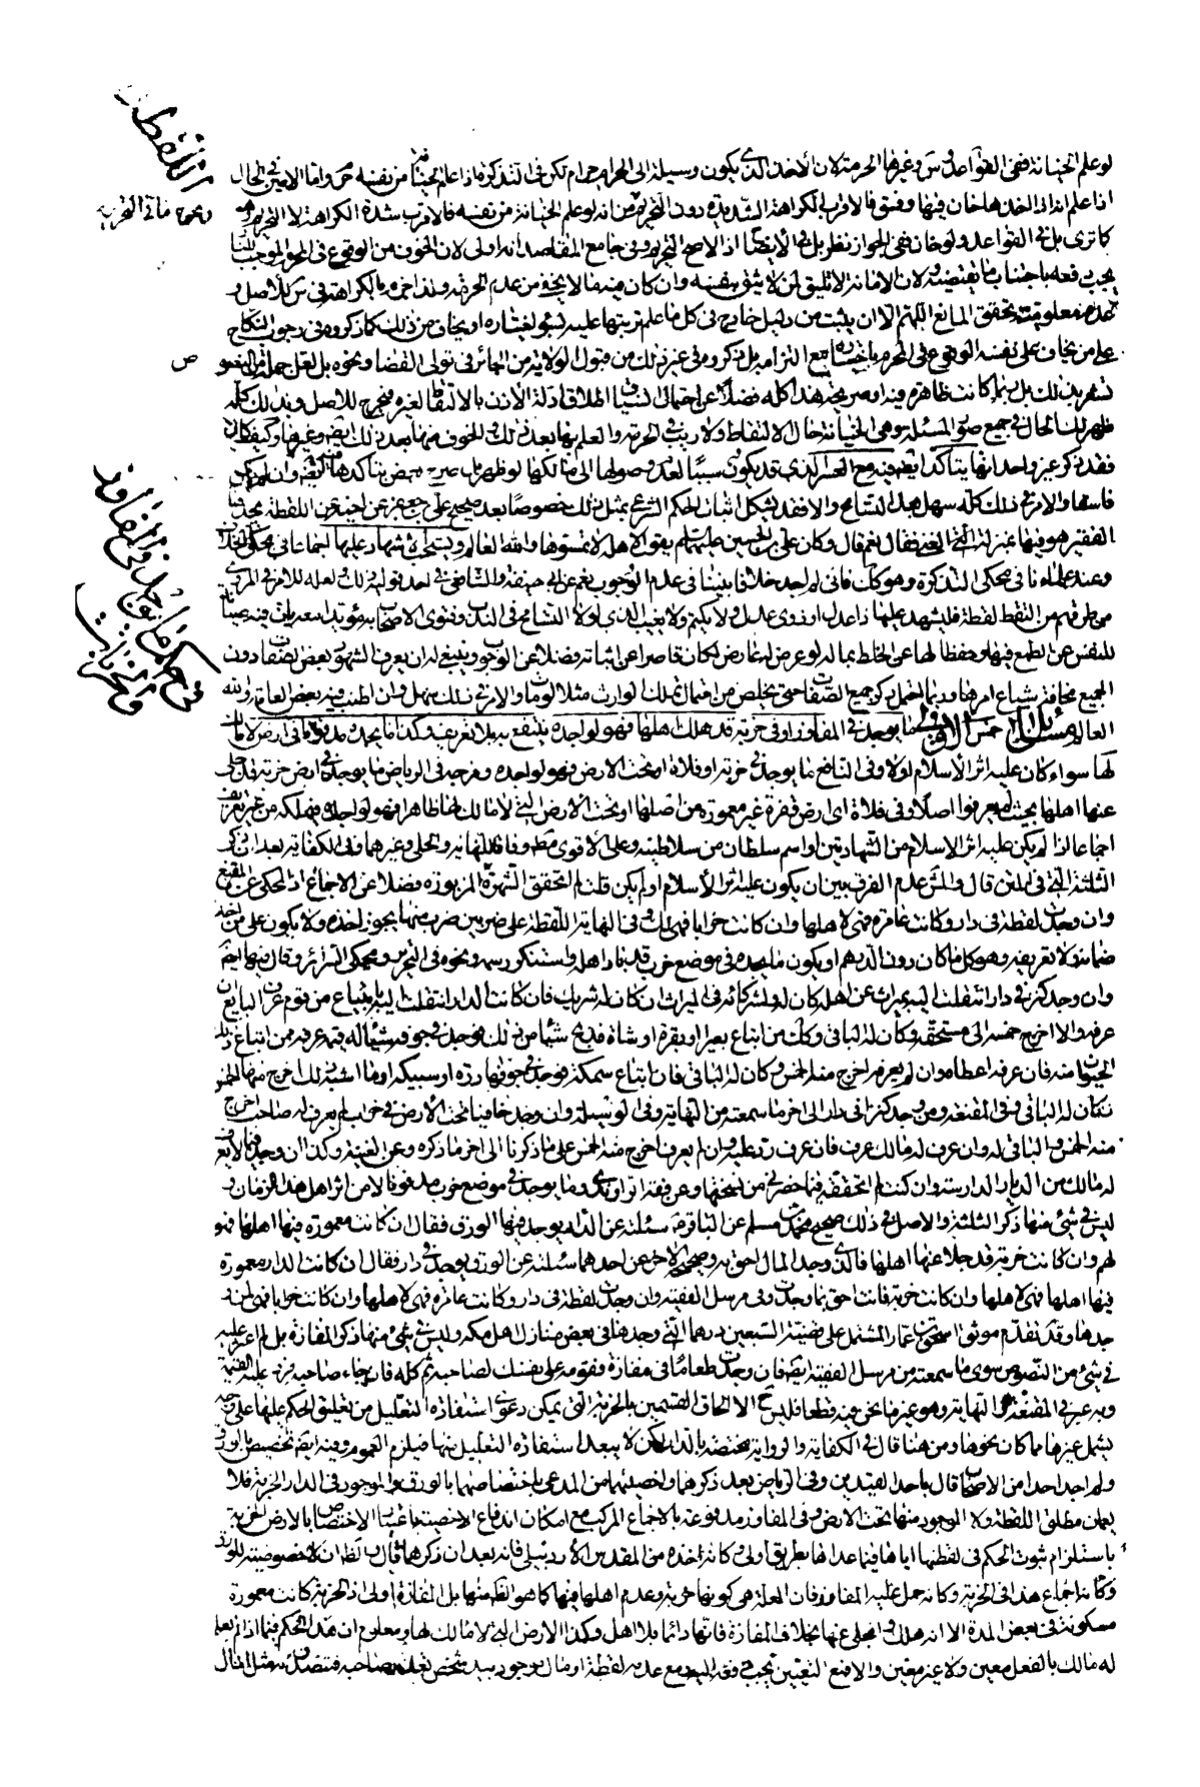 اللقطة
لو علم الخيانة ففي القواعد و س وغيرها الحرمة لان الأخذ الذي يكون وسيلة الى الحرام حرام لكن في التذكرة فاذا علم من نفسه حرم واما الامين في الحال
اذا علم انه اذا اخذها خان فيها وفسق فالاقرب الكراهة الشديدة دون التحريم انه لو علم الخيانة من نفسه فالاقرب شدة الكراهة لا التحريم
كما ترى بل في القواعد ولو خان ففي الجواز نظر بل في الأيضاح اذ الاصح التحريم وفي جامع المقاصد انه اولى لان الخوف من الوقوع في المحرم
يجب دفعه باجتناب ما يقتضيه ولان الامانة لا تليق لمن لا يثق بنفسه وان كان فيه ما لا يخفى من عدم الحرمة
تحقق المانع اللهم الا ان يثبت من دليل خارج في كل ما علم ترتبها عليه
على من يخاف على نفسه الوقوع في المحرم مع التزامه بل ذكروه في غير ذلك من قبول الولاية من الجائر في تولي القضاء ونحوه بل لعل
تشعر بذلك بل ربما كانت ظاهرة فيه او صريحة هذا كله فضلاً عن احتمال اطلاق ادلة الأذن بالالتقاط لغيره مخرج للاصل وبذلك كله
ظهر لك الحال في جميع صور المسئلة وهي الخيانة حال الالتقاط ولا ريب في الحرمة والعلم بها بعد ذلك والخوف منها بعد ذلك
فقد ذكر غير واحد انها يتأكد مع العسر الذي قد يكون سببا لعدم وصولها الى مالكها
فاسقا والامر في ذلك كله سهل بعد التسامح والا فقد يشكل اثبات الحكم الشرعي بمثل ذلك خصوصًا بعد صحيح علي بن جعفر عن اخيه عن اللقطة يجدها
الفقير هو فيها بمنزلة الغني فقال نعم قال وكان علي بن الحسين عليهما السلم يقول هي لاهلها لا تمسوها والله العالم ويستحب الاشهاد عليها
وعند علمائنا في محكى التذكرة وهو كك فاني لم اجد خلافا بيننا في عدم الوجوب نعم عن ابي حنيفة والشافعي في احد قوليه ذلك ولعله للامر في المروي
من طرقهم من التقط لقطة فليشهد عليها ذا عدل او ذوي عدل ولا يكتم ولا يغيب الذي لولا التسامح في الندب وفتوى الاصحاب به مؤيدا
للنفس عن الطمع فيها وحفظا لها عن الخلط بماله لو عرض له عارض لكان قاصرا عن اثباته فضلا عن الوجوب وينبغي له ان يعرف الشهود بعض دون
الجميع مخافة شياع امرها وربما احتمل ذكر جميع الصفات حتى يخلص من احتمال تملك الوارث مثلا لو مات والامر في ذلك سهل وان اطنب فيه بعض العامة والله
العالم مسائل خمس الاولى ما يوجد في المفاوز او في خربة قد هلك اهلها فهو لواجده ينتفع به بلا تعريف وكذا ما يجده مدفونا في ارض لا مالك
لها سواء كان عليه اثر الاسلام او لا وفي النافع ما يوجد في خربة او فلاة او تحت الارض فهو لواجده ومزجه في الرياض ما يوجد في ارض خربة قد جلى
عنها اهلها بحيث لم يعرفوا اصلا او في فلاة اي ارض قفرة غير معمورة من اصلها او تحت الارض التي لا مالك لها ظاهرا فهو لواجده فيملكه من غير تعريف
اجماعا اذا لم يكن عليه اثر الاسلام من الشهادتين او اسم سلطان من سلاطينه وعلى الاقوى مطلقا وفاقا للنهاية والحلي وغيرهما وفي الكفاية بعد ان ذكر
الثلثة التي في المتن قال والمش عدم الفرق بين ان يكون عليه اثر الأسلام او لم يكن قلت لم اتحقق الشهرة المزبورة فضلا عن الاجماع اذ المحكى عن المقنع
وان وجدت لقطة في دار وكانت عامرة فهي لاهلها وان كانت خرابا فهي لك وفي النهاية اللقطة على ضربين ضرب منها يجوز اخذه ولا يكون على من اخذه
ضمانه ولا تعريفه وهو كل ما كان دون الدرهم او يكون ما يجده في موضع خرب قد باد اهله واستنكر رسمه ونحوه في التحرير ومحكى السرائر وقال فيها ايضا
وان وجد كنز في دار انتقلت اليه بميراث عن اهله كان له ولشركائه في الميراث ان كان له شريك فان كانت الدار انتقلت اليه بابتياع من قوم عرف البايع فان
عرفه والا اخرج خمسه الى مستحقه وكان له الباقي وكك من ابتاع بعيرا او بقرة او شاة فذبح شيئا من ذلك فوجد في جوفه شيئا له قيمة عرفه من ابتاع ذلك
الحيوان منه فان عرفه اعطاه وان لم يعرفه اخرج منه الخمس وكان له الباقي فان ابتاع سمكة فوجد في جوفها درة او سبيكة او ما اشبه ذلك اخرج منها الخمس
وكان له الباقي وفي المقنعة ومن وجد كنزا في دار الى اخر ما سمعته من النهاية وفي الوسيلة وان وجد خافيا تحت الأرض في خراب لم يعرف له صاحب اخرج
منه الخمس والباقي له وان عرف له مالك عرف فان عرف رد عليه وان لم يعرف اخرج منه الخمس على ما ذكرنا الى اخر ما ذكره وعن الغنية وكذا ان وجد فيما لا يعرف
له مالك من الديار الدارسة وان كنت لم اتحققه فيما حضرني من نسختها وعن فقه الراوندي وما يوجد في موضع خرب مدفونا لا من اثر اهل هذا الزمان و
ليس في شيء منها ذكر الثلثة والاصل في ذلك صحيح محمد بن مسلم عن الباقر سئلته عن الدار يوجد فيها الورق فقال ان كانت معمورة فيها اهلها فهو
لهم وان كانت خربة قد جلا عنها اهلها فالذي وجد المال احق به وصحيحه الاخر عن احدهما سئلته عن الورق يوجد في دار فقال ان كانت الدار معمورة
فيها اهلها فهي لاهلها وان كانت خربة فانت احق بما وجدت وفي مرسل الفقيه وان وجدت لقطة في دار وكانت عامرة فهي لاهلها وان كانت خرابا فهي لمن
وجدها وقد تقدم موثق اسحق بن عمار المشتمل على قضية السبعين درهما التي وجدها في بعض منازل اهل مكة وليس في شيء منها ذكر المفازة بل لم اعثر عليه
في شيء من النصوص سوى ما سمعته من مرسل الفقيه ايضا فان وجدت طعامًا في مفازة فقومه على نفسك لصاحبه ثم كله فان جاء صاحبه فرد عليه القيمة
وبه عبر في المقنعة والنهاية وهو غير ما نحن فيه قطعا فليس ح الا الحاق القسمين بالخربة التي يمكن دعوى استفادة التعليل من تعليق الحكم عليها على وجه
يشمل غيرها مما كان نحوها ومن هنا قال في الكفاية والرواية مختصة بالدار لكن لا يبعد استفادة التعليل منها فيلزم العموم وفيه ايضا تخصيص بالورق
ولم اجد احدا من الاصحاب قال باحد القيدين وفي الرياض بعد ذكرهما واخصيتهما من المدعى باختصاصهما بالورق والموجود في الدار الخربة فلا
يعمان مطلق اللقطة ولا الموجود منها تحت الارض وفي المفاوز مدفوعة بالاجماع المركب مع امكان اندفاع الاخصية باعتبار الاختصاص بالارض الخربة
باستلزام ثبوت الحكم في لقطتها اياها فيما عداها بطريق اولى وكانه اخذه من المقدس الاردبيلي فانه بعد ان ذكرهما قال والظ ان لا خصوصية للورق
وكانه اجماع هذا في الخربة وكانه حمل عليه المفاوز فان العلة هي كونها خربة وعدم اهلها فيها كما هو الظ منها بل المفازة اولى اذ الخربة كانت معمورة
مسكونة في بعض المدة الا انه هلك وانجلى عنها بخلاف المفازة فانها دائما بلا اهل وكذا الارض التي لا مالك لها ومعلوم ان هذا الحكم فيما اذا لم يعلم
له مالك بالفعل معين ولا غير معين والا فمع التعيين يجب دفعه اليه مع عدمه لقطة او مال موجود بيد شخص لا يعلم صاحبه فتصدق بمثل المال
في حكم ما يوجد في المفاوز
والخربات